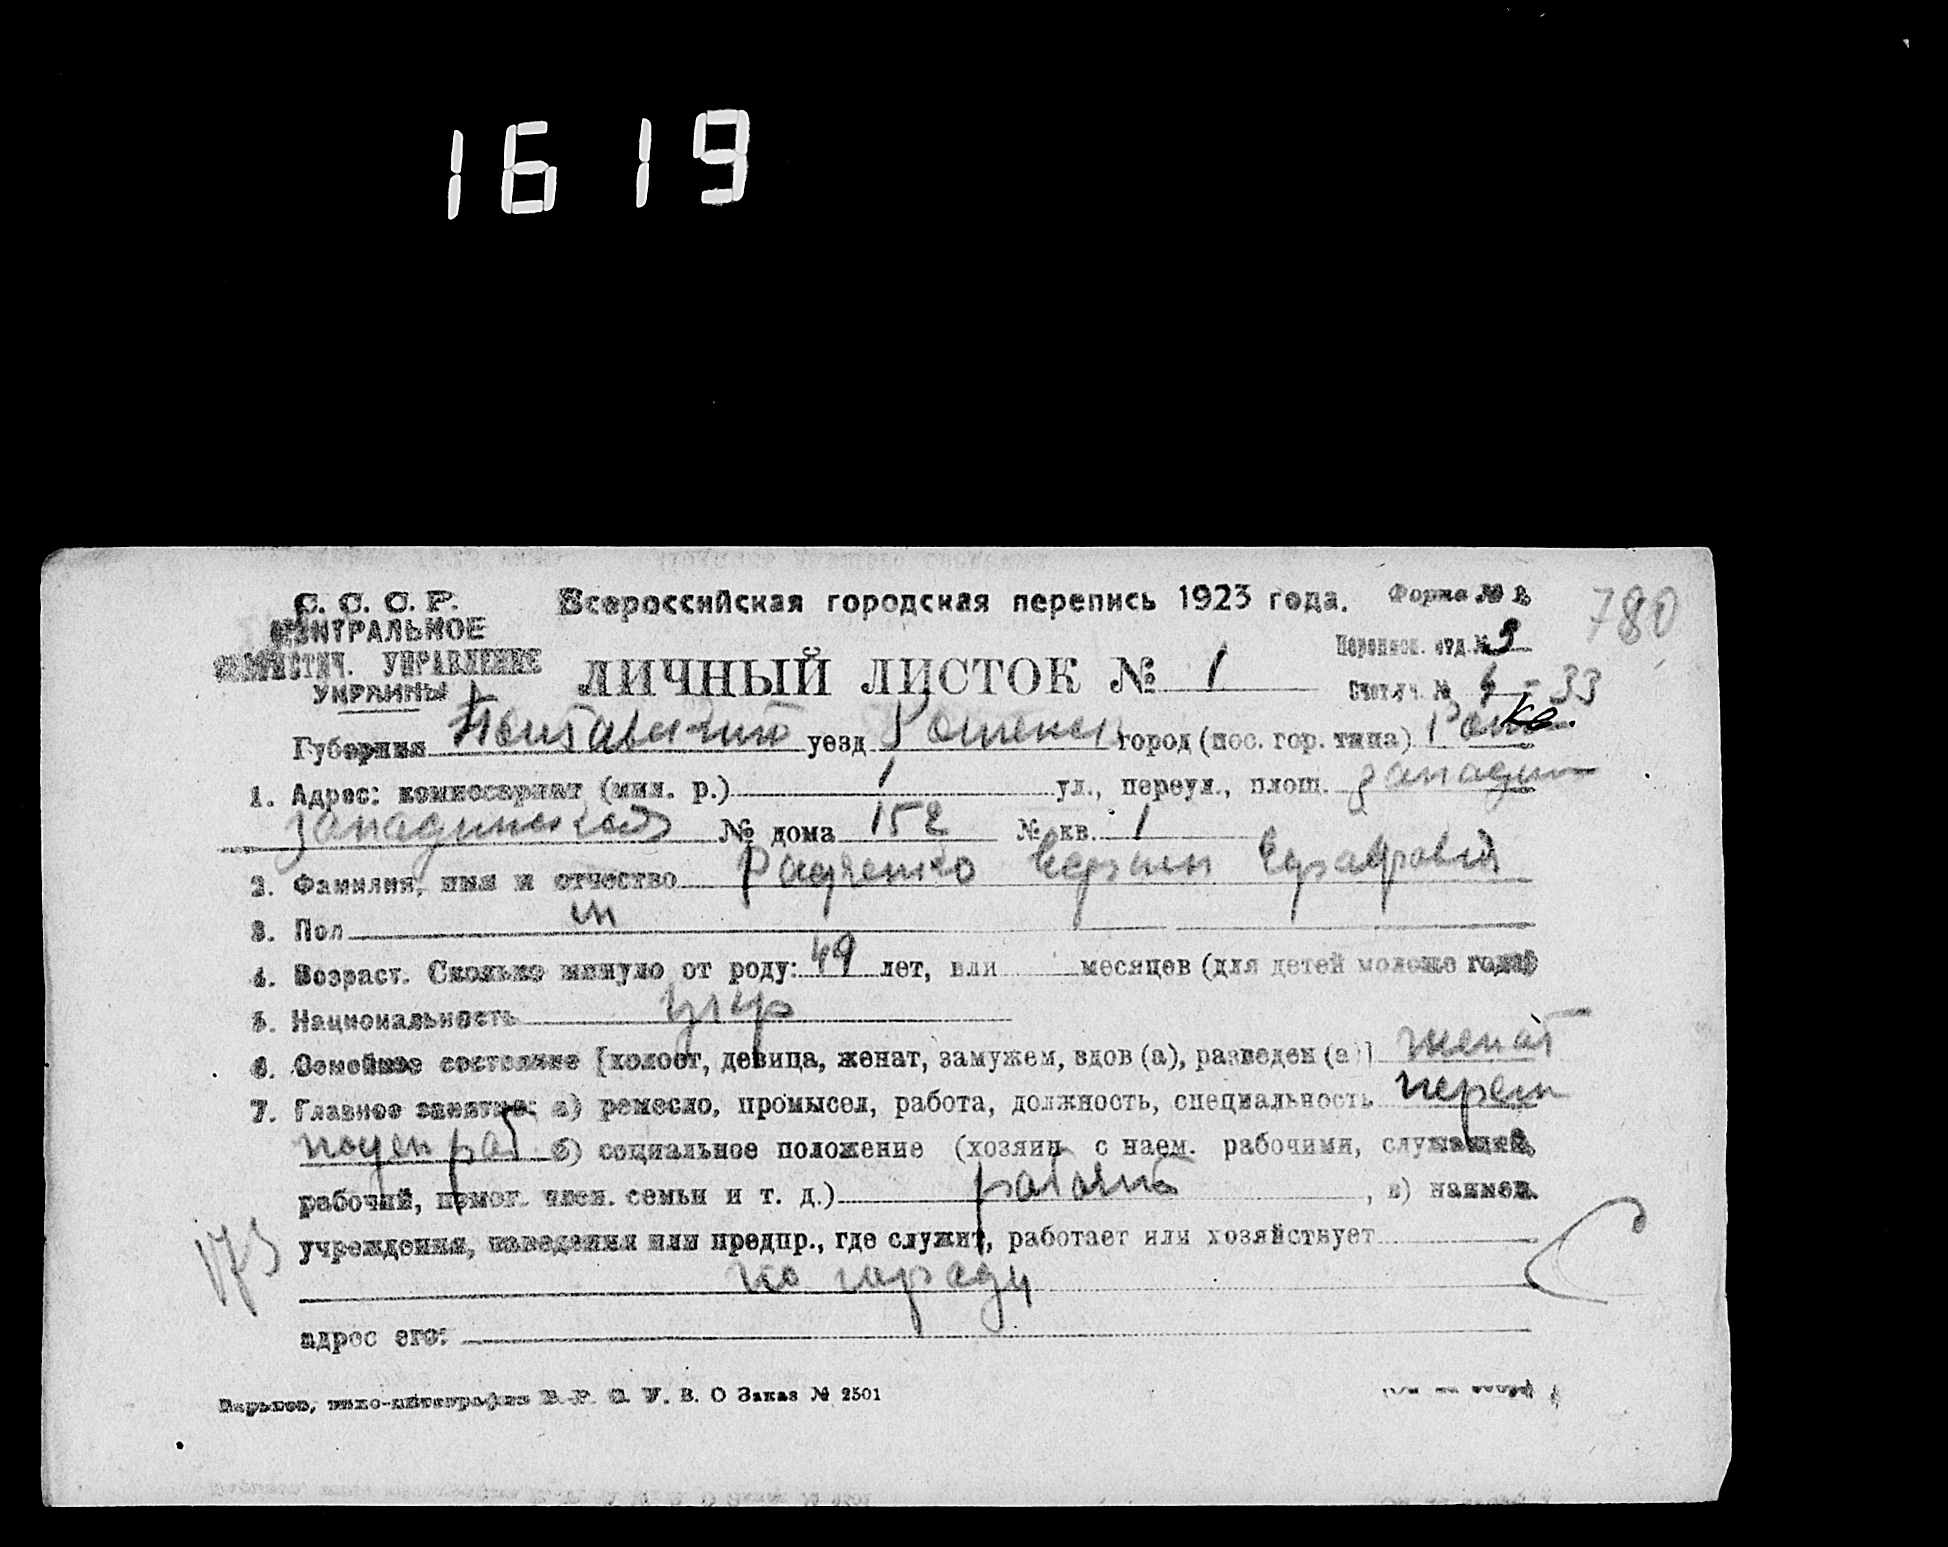 1619
С. С. С. Р.
ЦЕНТРАЛЬНОЕ
СТАТИСТИЧ. УПРАВЛЕНИЕ
УКРАИНЫ
Всероссийская городская перепись 1923 года.
Форма № 2
780
Перепись. отд. № 9
ЛИЧНЫЙ ЛИСТОК № 1
Счетн. уч. № 4 - 33
Губерния Полтавская уезд Роменск город (пос. гор. типа)
1. Адрес: комиссариат (мил. р.) 1 ул., переул., площ.
№ дома 152 № кв. 1
2. Фамилия, имя и отчество Радченко
3. Пол м
4. Возраст. Сколько минуло от роду: 49 лет, или месяцев (для детей моложе года)
5. Национальность укр
6. Семейное состояние [холост, девица, женат, замужем, вдов (а), разведен (а)] женат
7. Главное занятие: а) ремесло, промысел, работа, должность, специальность
поден раб б) социальное положение (хозяин с наем. рабочими, служащий,
рабочий, помог. член. семьи и т. д.) , в) наимен.
173 учреждения, заведения или предпр., где служит, работает или хозяйствует
по городу
адрес его:
Харьков, Заказ № 2501